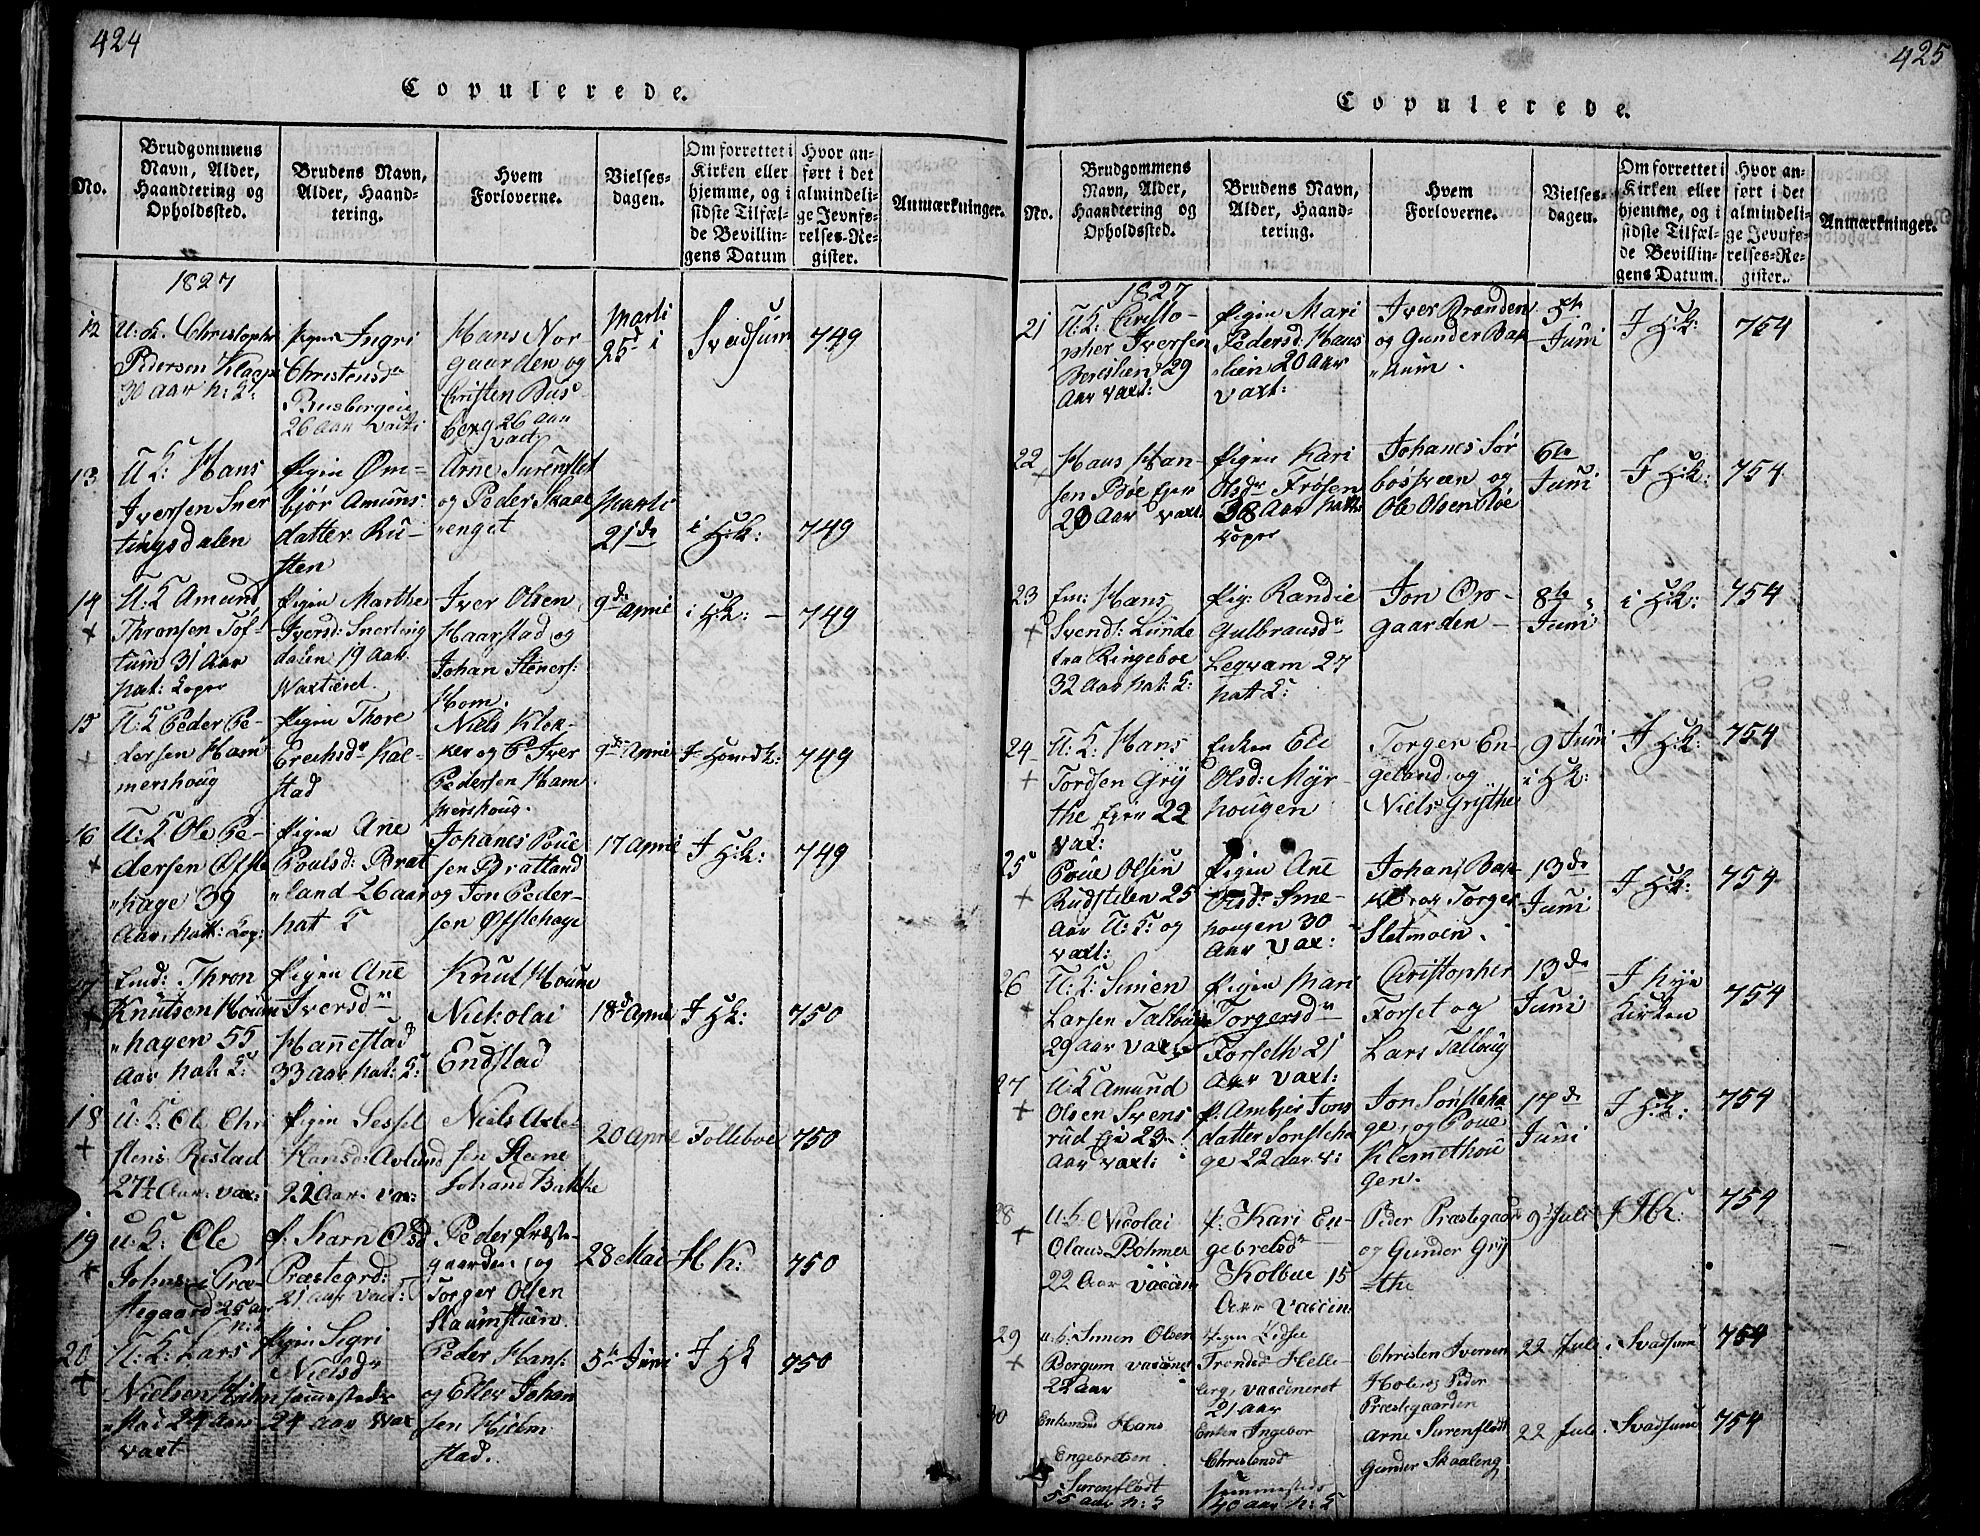 424
Copulerede.
No.
Brudgommens
Navn, Alder,
Haandtering og
Opholdssted.
Brudens Navn,
Alder, Haand-
tering.
Hvem
Forloverne.
Vielses-
dagen.
Om forrettet i
Kirken eller
hjemme, og i
sidste Tilfæl-
de Bevillin-
gens Datum
Hvor an-
ført i det
almindeli-
ge Jevnfø-
relses-Re-
gister.
Anmærkninger.
1827
12
U: K. Christopher
Pedersen Klaape
30 Aar h: K:
Pigen Ingri
Christensdr
Busbergeie
26 Aar vact:
Hans Nor
gaarden og
Christen Bus
berg 26 Aar
vact
Marti
25d i
Svadsum
749
13
U K: Hans
Iversen Sner
tingsdalen
Pigen Øm-
bjør Amuns
datter Ru-
sten
Arne Surenflet
og Peder Skaal
"enget
Marti
21de
i H:k:
749
14
+
U: K Amund
Thronsen Tof-
tum 31 Aar
hat: Kopr
Pigen Marthe
Iversd: Snerting
dalen 19 Aar
Vaxtieret.
Iver Olsen
Haarstad og
Johan Steners:
Hom.
9de April
i H:k: -
749
15
+
U: K Peder Pe-
dersen Ham
mershoug
Pigen Thore
Erichsdr Kal-
stad
Niels Klok-
ker og Iver
Pedersen Ham
mershoug.
9de April
I Hovedk:
749
16
+
U: K Ole Pe-
dersen Øfste
"hage 39
Aar, hat: Kop:
Pigen Ane
Poulsd: Brat
"land 26 aar
hat K
Johanes Poue
sen Bratland
og Jon Peder-
sen Øfstehage
17 April
I H:k:
749
17
+
End: Thron
Knutsen Houm
"hagen 55
Aar hat: K:
Pigen Ane
Iversdr
Hannestad
33 Aar hat: K:
Knut Houm
Nickolai
Endstad
18d April
I Hk:
750
18
+
U: K: Ole Chri
stens: Ristad
27½ Aar: vax:
Pigen Sessel
Hansd: Avlund
22 Aar: vax:
Niels Axle-
sen Steine
Johand Bakke
20 April
Folleboe
750
19
+
U: K: Ole
Johns: Præ-
stegaard 25 aar
n:
P: Karn Olsd
Præstegrd:
21 aar vact: K
Peder Præste
gaarden, og
Torger Olsen
Staumstuen.
28 Mai
H k:
750
20
+
U: K: Lars
Nielsen Hielm
"stad 24 Aar
vaxt
Pigen Sigri
Nielsd
24 Aar vax
Peder Hans:
og Ellev Johan
sen Hielm
stad.
5te Juni
I Hk
750
425
Copulerede.
No.
Brudgommens
Navn, Alder,
Haandtering og
Opholdssted.
Brudens Navn,
Alder, Haand-
tering.
Hvem
Forloverne.
Vielses-
dagen.
Om forrettet i
Kirken eller
hjemme, og i
sidste Tilfæl-
de Bevillin-
gens Datum.
Hvor an-
ført i det
almindeli-
ge Jevnfø-
relses-Re-
gister.
Anmærkninger.
1827
21
U: K: Christo-
pher Iversen
29
Aar vaxt:
Pigen Mari
Pedersd: Haus
"lien 20 Aar
vaxt:
Iver Branden
og Gunder Bak
"kum.
5te
Juni
I H:k:
754
22
+
Hans Han-
sen Bøe Eier
29 Aar vaxt:
Pigen Kari
Olsdr Frøsen
38 Aar hat
Kopr
Johanes Sør
og
Ole Olsen Bøe
6te
Juni
I H:k:
754
23
+
Em: Hans
Svends: Lunde
fra Ringeboe
32 Aar hat: K:
Pig: Randie
Gulbransdr
Legvam 27
hat K:
Jon Ør-
gaarden
8te
Juni
i H:k:
754
24
+
U: K: Hans
Tordsen Gry
the Eier 22
vax:
Enken Eli
Olsd: Myr-
hougen
Torger En-
geland og
Niels Grythe
9 Juni
i H:k:
I H:k:
754
25
+
Poue Olsen
Rudstilen 25
Aar U: K: og
vaxt:
Pigen Ane
Olsdr Sme-
hougen 30
Aar vax:
Johans Bak
ke, og Torger
Sletmoen.
13de
Juni
I H:k:
754
26
+
U: K: Simen
Larsen Talloug
29 aar vax:
Pigen Mari
Torgersdr
Forseth 21
Aar vaxt:
Christopher
Forset og
Lars Talloug
13de
Juni
I Nye
Kirken
754
27
+
U: K Amund
Olsen Svens
rud Eie 29
Aar vaxt:
P: Ambjer Jons
datter Sønsteha
ge 22 aar v:
Jon Sønsteha
ge, og Poue
Klemethou
gen.
14de
Juni
I H:k:
754
28
+
U: K: Nicolai
Olaus Bohmer
22 Aar vaccine
P: Kari En-
gebretsdr
Kolbue 15
Aar vaccin:
Peder Præstegaard
og Gunder Gry
-the
9: Juli
I HK:
754
29
+
U: K: Simen Olsen
Borgum vaccinet
22 Aar
Pigen Eidsee
Tronds: Helle
berg, vaccineret
21 Aar
Christen Iversen
Holeng Peder
Præstegaarden
22 Juli
i Svadsum
754
30
Enkemand Hans
Engebretsen
Surenflødt
55 aar h: K
Enken Ingebor
Christensd
40 aar h: K
Arne Surenflødt
Gunder Skaaleng
22 Juli
i Svadsum
754